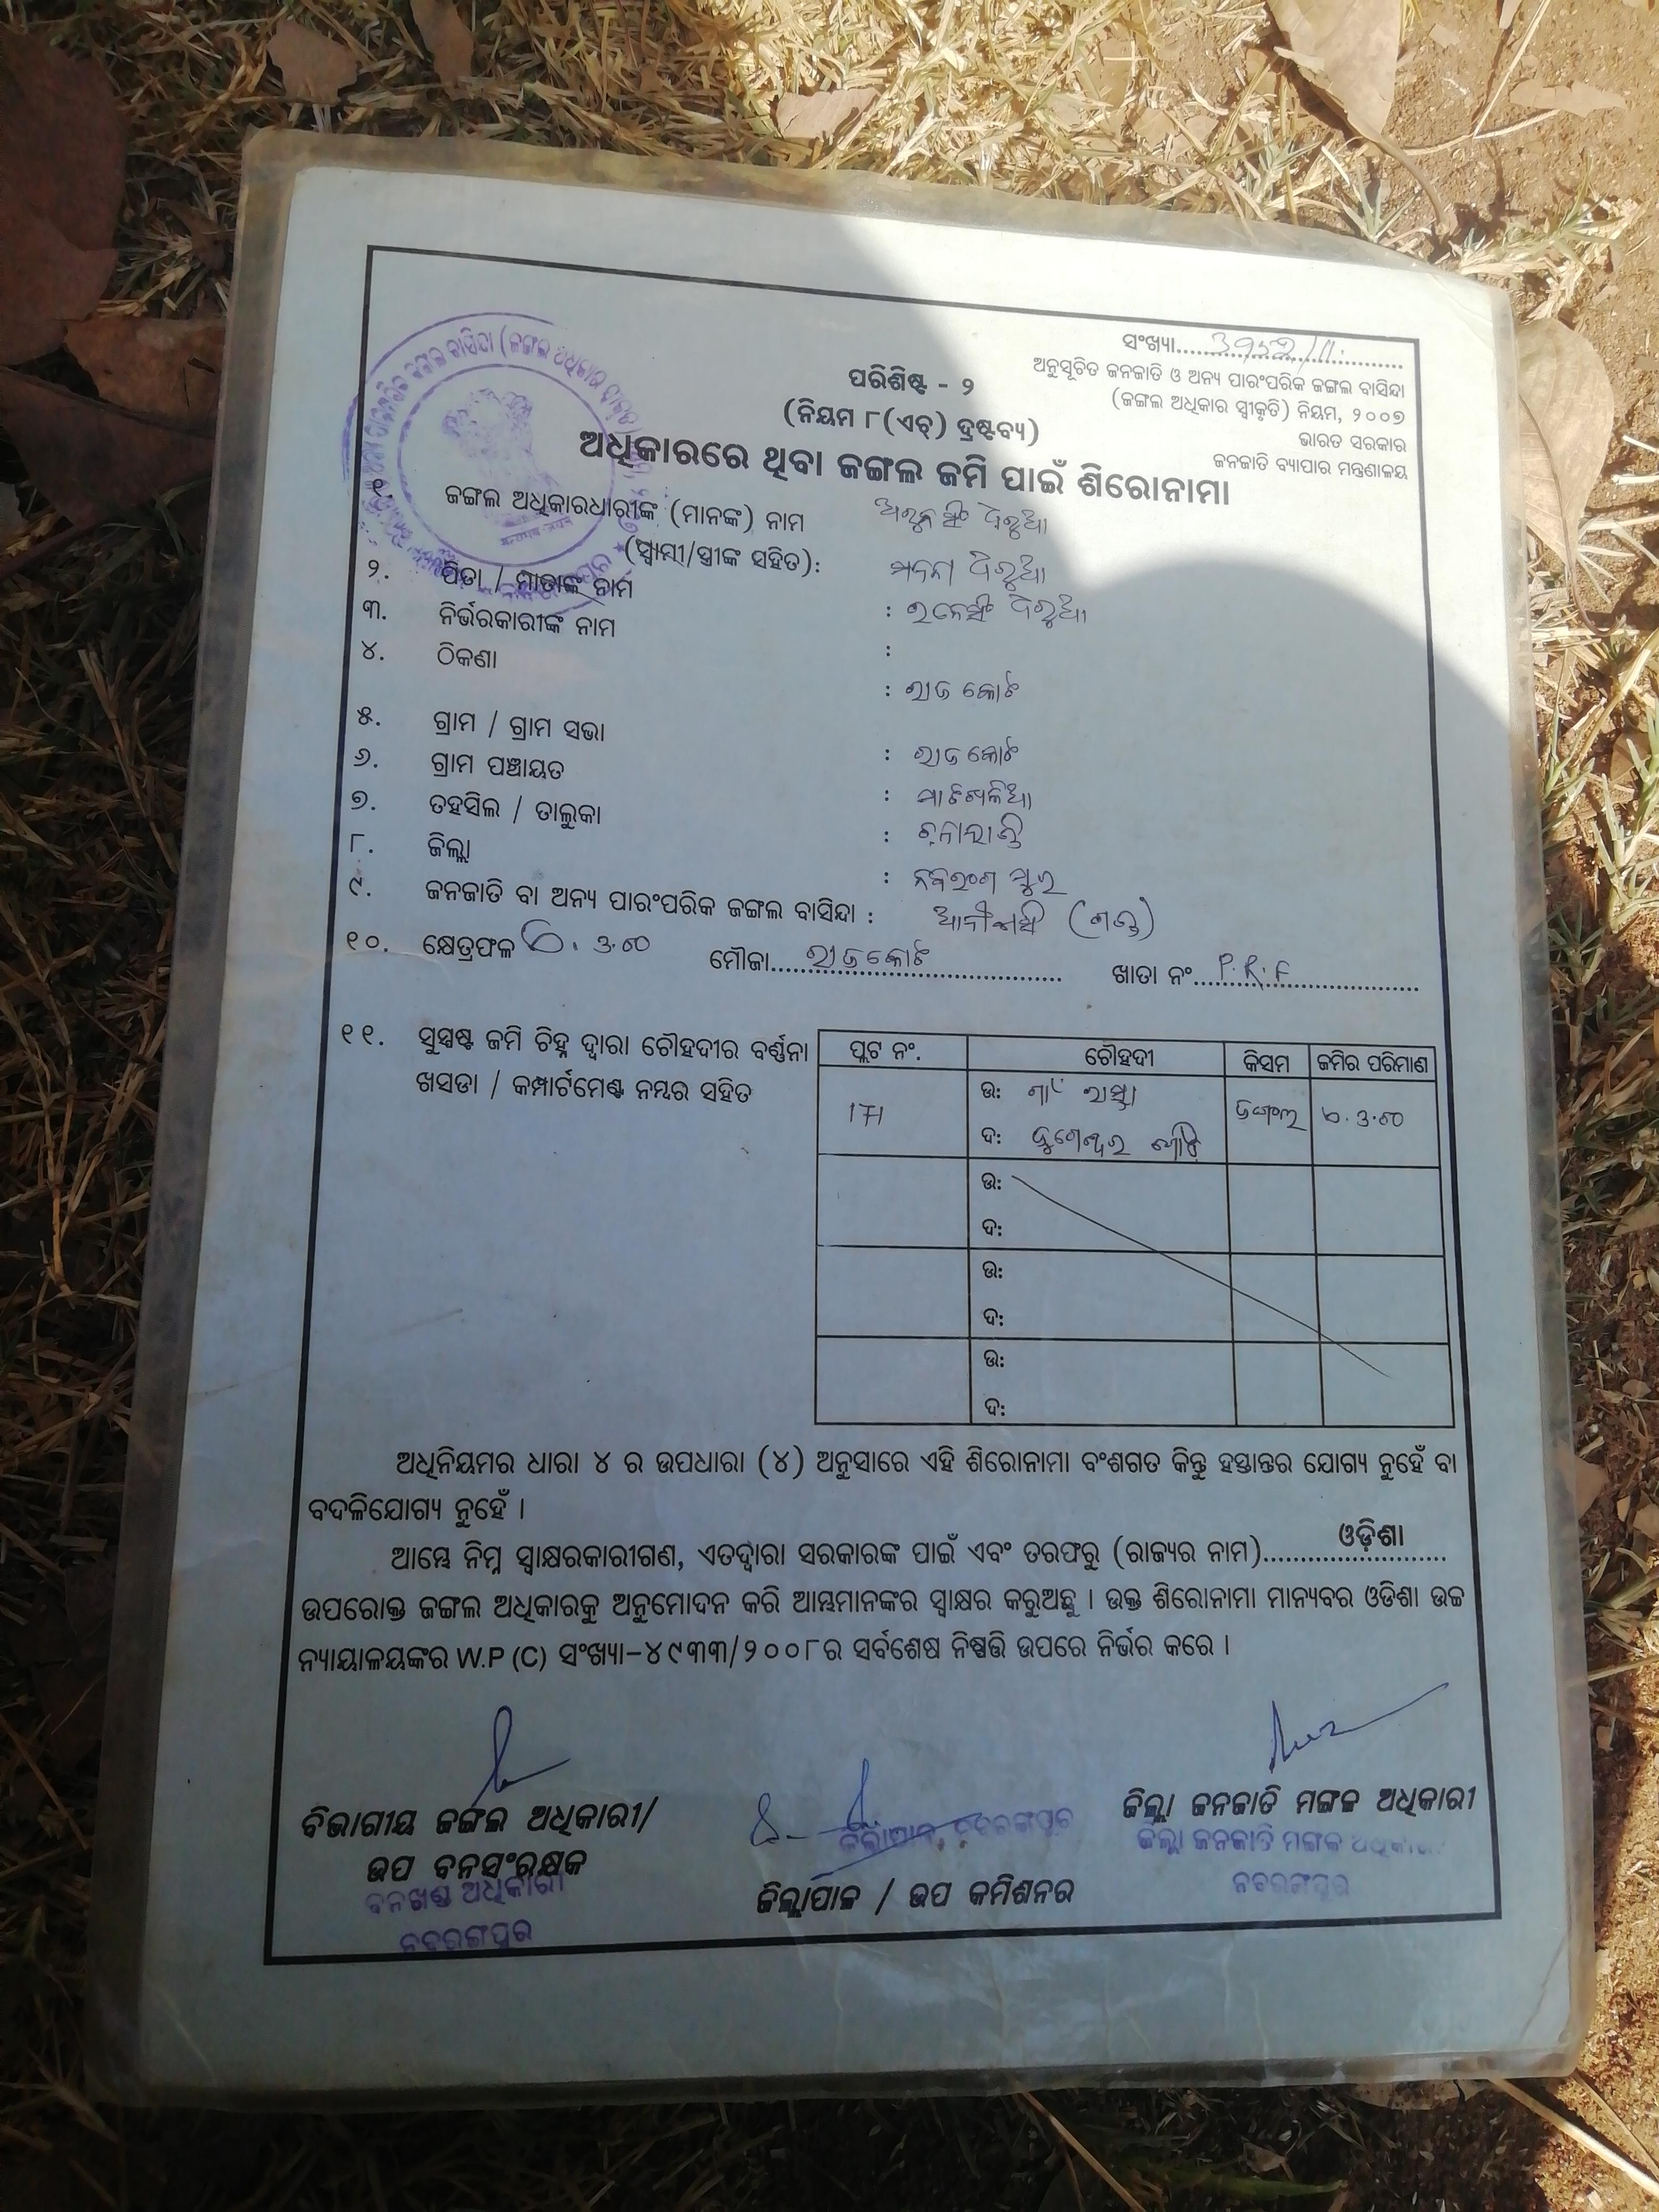 ସଂଖ୍ୟା
ଅନୁସୂଚିତ ଜନଜାତି ଓ ଅନ୍ୟ ପାରଂପରିକ ଜଙ୍ଗଲ ବାସିନ୍ଦା
(ଜଙ୍ଗଲ ଅଧିକାର ସ୍ୱୀକୃତି) ନିୟମ, ୨୦୦୭
ଭାରତ ସରକାର
ଜନଜାତି ବ୍ୟାପାର ମନ୍ତ୍ରଣାଳୟ
ପରିଶିଷ୍ଟ - ୨
(ନିୟମ ୮(ଏଚ୍) ଦ୍ରଷ୍ଟବ୍ୟ)
ଅଧିକାରରେ ଥିବା ଜଙ୍ଗଲ ଜମି ପାଇଁ ଶିରୋନାମା
୧. ଜଙ୍ଗଲ ଅଧିକାରଧାରୀଙ୍କ (ମାନଙ୍କ) ନାମ
(ସ୍ୱାମୀ/ସ୍ତ୍ରୀଙ୍କ ସହିତ):
୨. ପିତା / ମାତାଙ୍କ ନାମ :
୩. ନିର୍ଭରକାରୀଙ୍କ ନାମ :
୪. ଠିକଣା : ରାଜକୋଟ
୫. ଗ୍ରାମ / ଗ୍ରାମ ସଭା : ରାଜକୋଟ
୬. ଗ୍ରାମ ପଞ୍ଚାୟତ :
୭. ତହସିଲ / ତାଲୁକା :
୮. ଜିଲ୍ଲା : ନବରଂଗପୁର
୯. ଜନଜାତି ବା ଅନ୍ୟ ପାରଂପରିକ ଜଙ୍ଗଲ ବାସିନ୍ଦା :
୧୦. କ୍ଷେତ୍ରଫଳ ମୌଜା ରାଜକୋଟ ଖାତା ନଂ P.R.F
୧୧. ସୁସ୍ପଷ୍ଟ ଜମି ଚିହ୍ନ ଦ୍ୱାରା ଚୌହଦୀର ବର୍ଣ୍ଣନା
ଖସଡା / କମ୍ପାର୍ଟମେଣ୍ଟ ନମ୍ବର ସହିତ
ପ୍ଲଟ ନଂ. ଚୌହଦୀ କିସମ ଜମିର ପରିମାଣ
171 ଉ: ଗାଁ ରାସ୍ତା ଜଙ୍ଗଲ
ଦ:
ଉ:
ଦ:
ଉ:
ଦ:
ଉ:
ଦ:
ଅଧିନିୟମର ଧାରା ୪ ର ଉପଧାରା (୪) ଅନୁସାରେ ଏହି ଶିରୋନାମା ବଂଶଗତ କିନ୍ତୁ ହସ୍ତାନ୍ତର ଯୋଗ୍ୟ ନୁହେଁ ବା
ବଦଳିଯୋଗ୍ୟ ନୁହେଁ ।
ଆମ୍ଭେ ନିମ୍ନ ସ୍ୱାକ୍ଷରକାରୀଗଣ, ଏତଦ୍ୱାରା ସରକାରଙ୍କ ପାଇଁ ଏବଂ ତରଫରୁ (ରାଜ୍ୟର ନାମ) ଓଡ଼ିଶା
ଉପରୋକ୍ତ ଜଙ୍ଗଲ ଅଧିକାରକୁ ଅନୁମୋଦନ କରି ଆମ୍ଭମାନଙ୍କର ସ୍ୱାକ୍ଷର କରୁଅଛୁ । ଉକ୍ତ ଶିରୋନାମା ମାନ୍ୟବର ଓଡିଶା ଉଚ୍ଚ
ନ୍ୟାୟାଳୟଙ୍କର W.P (C) ସଂଖ୍ୟା-୪୯୩୩/୨୦୦୮ର ସର୍ବଶେଷ ନିଷ୍ପତ୍ତି ଉପରେ ନିର୍ଭର କରେ ।
ବିଭାଗୀୟ ଜଙ୍ଗଲ ଅଧିକାରୀ/
ଉପ ବନସଂରକ୍ଷକ
ବନଖଣ୍ଡ ଅଧିକାରୀ
ନବରଙ୍ଗପୁର
ଜିଲ୍ଲାପାଳ, ନବରଙ୍ଗପୁର
ଜିଲ୍ଲାପାଳ / ଉପ କମିଶନର
ଜିଲ୍ଲା ଜନଜାତି ମଙ୍ଗଳ ଅଧିକାରୀ
ଜିଲ୍ଲା ଜନଜାତି ମଙ୍ଗଳ ଅଧିକାରୀ
ନବରଙ୍ଗପୁର